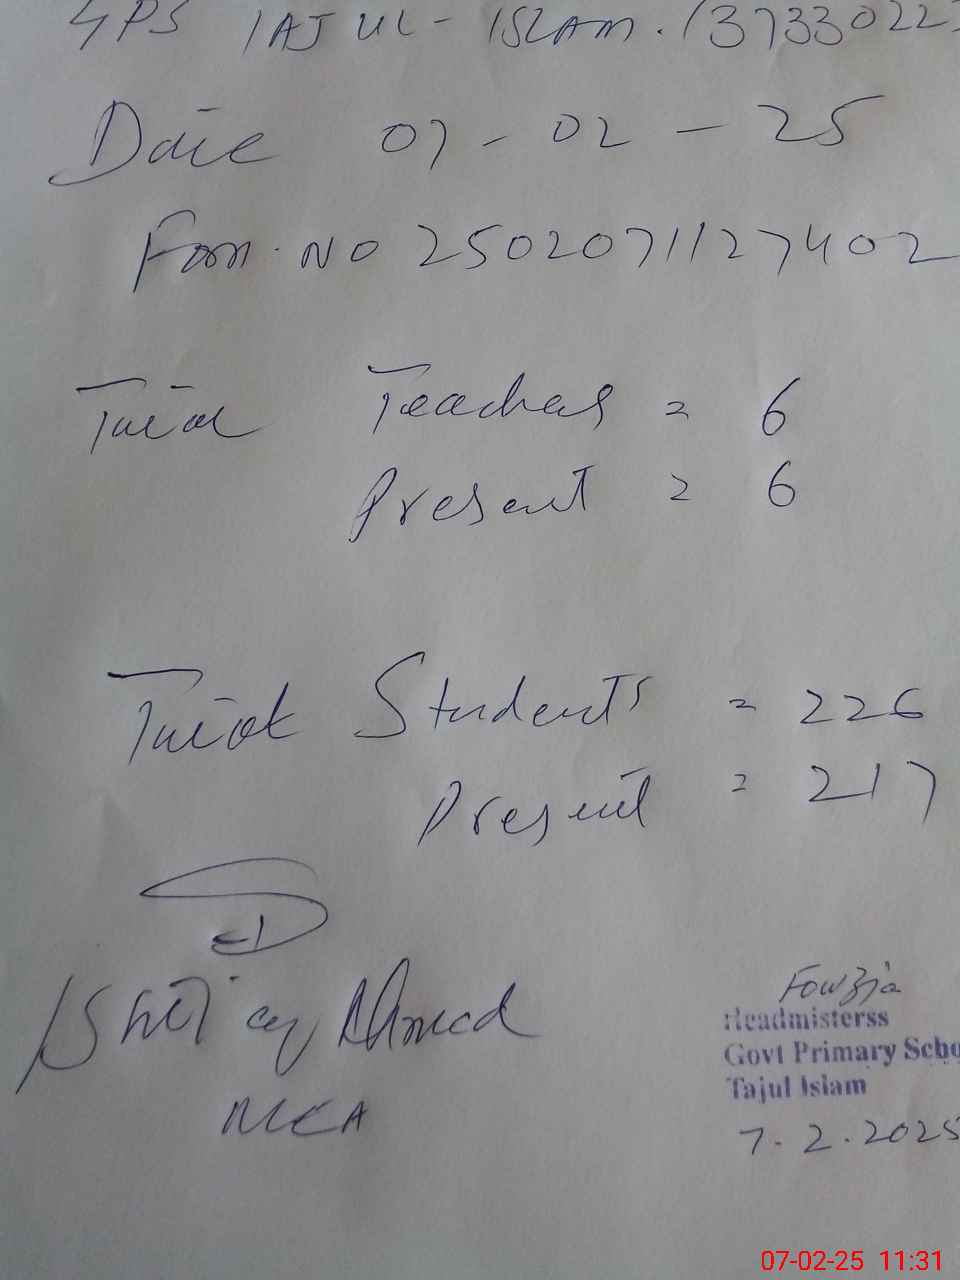 GPS TAJUL-ISLAM. (3733022
Date 07-02-25
Form. NO 2502071127402
Total Teachers = 6
Present = 6
Total Students = 226
Present = 217
Ishtiaq Ahmed
MEA
Fowzia
Headmisterss
Govt Primary Scho
Tajul Islam
7.2.2025
07-02-25 11:31